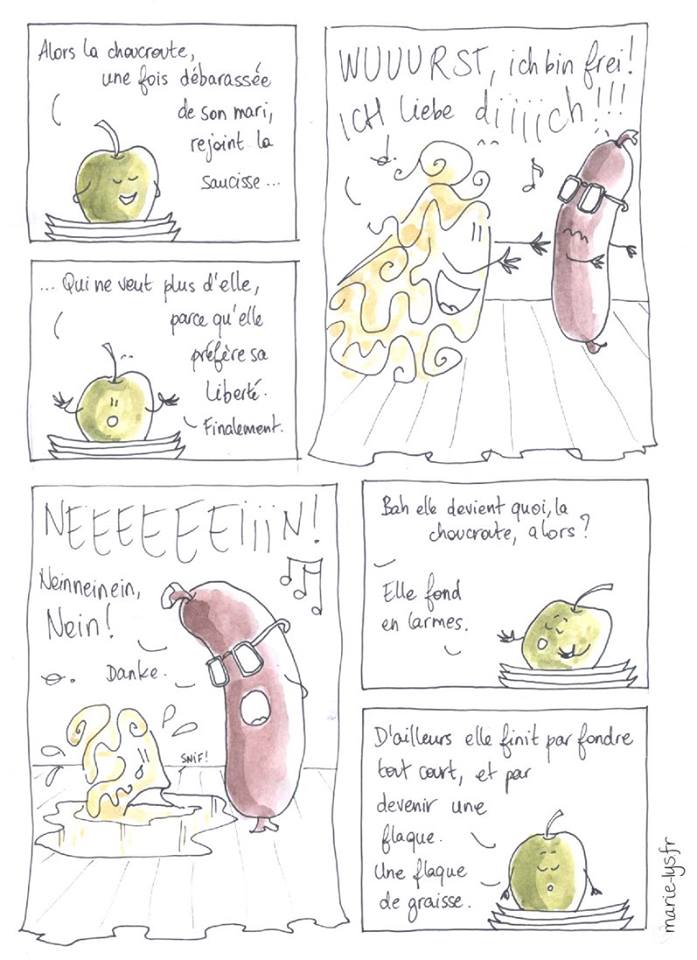 Alors la choucroute,
une fois débarassée
de son mari,
rejoint la
saucisse...
WUUURST, ich bin frei!
ICH liebe diiiich!!!
... Qui ne veut plus d'elle,
parce qu'elle
préfère sa
liberté.
Finalement.
NEEEEEEiiiN!
Neinneinein,
Nein!
Danke.
SNIF!
Bah elle devient quoi, la
choucroute, alors?
Elle fond
en larmes.
D'ailleurs elle finit par fondre
tout court, et par
devenir une
flaque.
Une flaque
de graisse.
marie-lys.fr